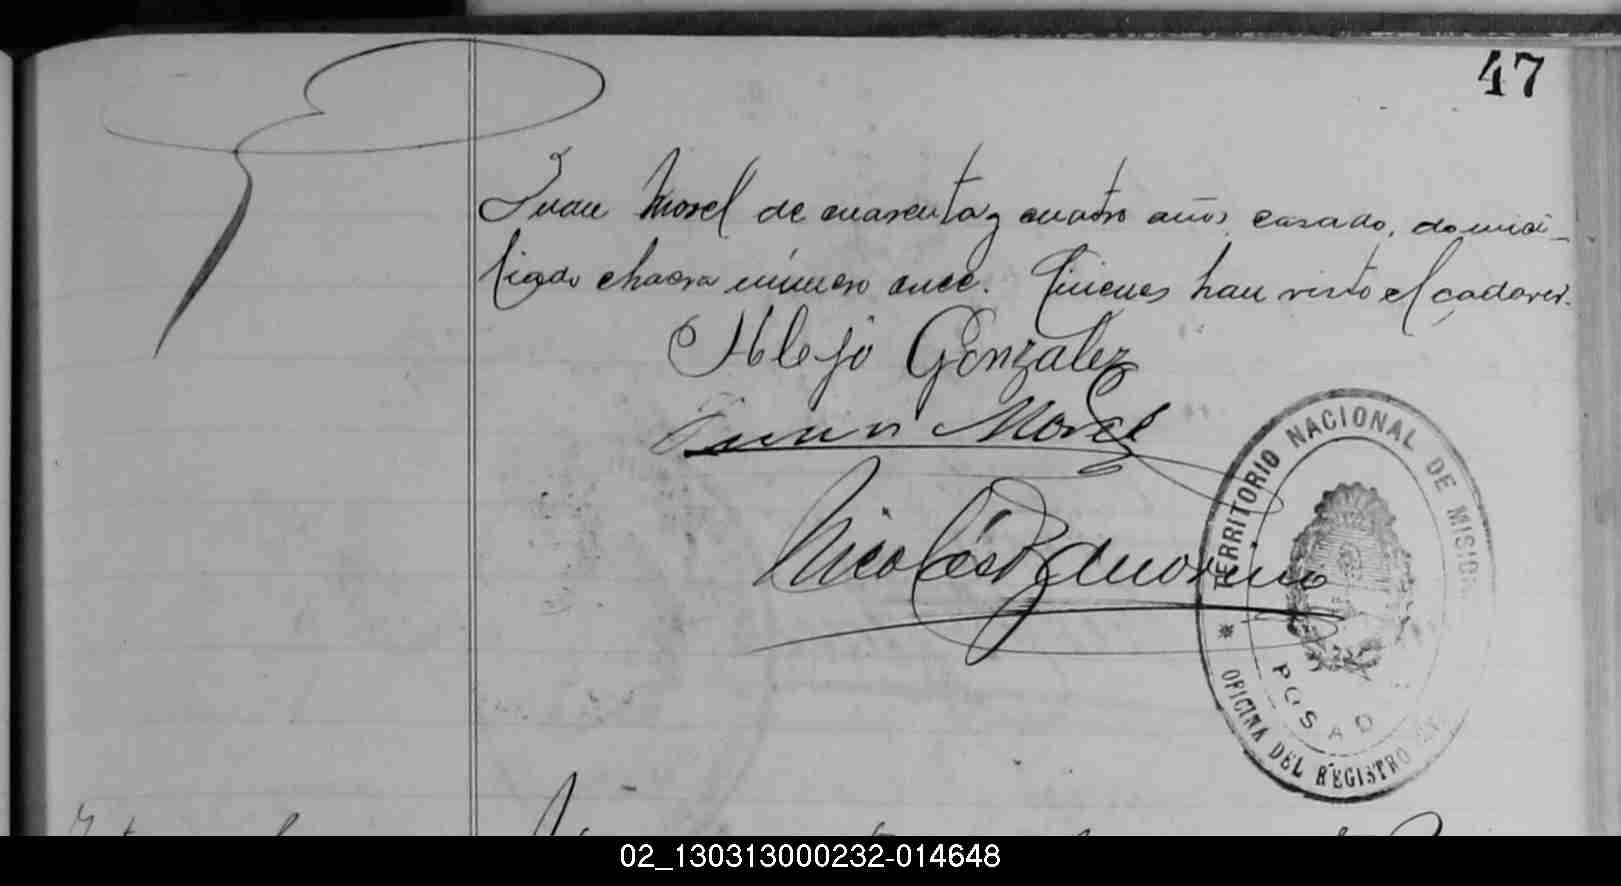 47
Juan Morel de cuarenta y cuatro años, casado, domici-
liado chacra número once. Quienes han visto el cadaver.
Alejo Gonzalez
Juan Morel
Nicolás
TERRITORIO NACIONAL DE MISION
POSAD
* OFICINA DEL REGISTRO
02_130313000232-014648